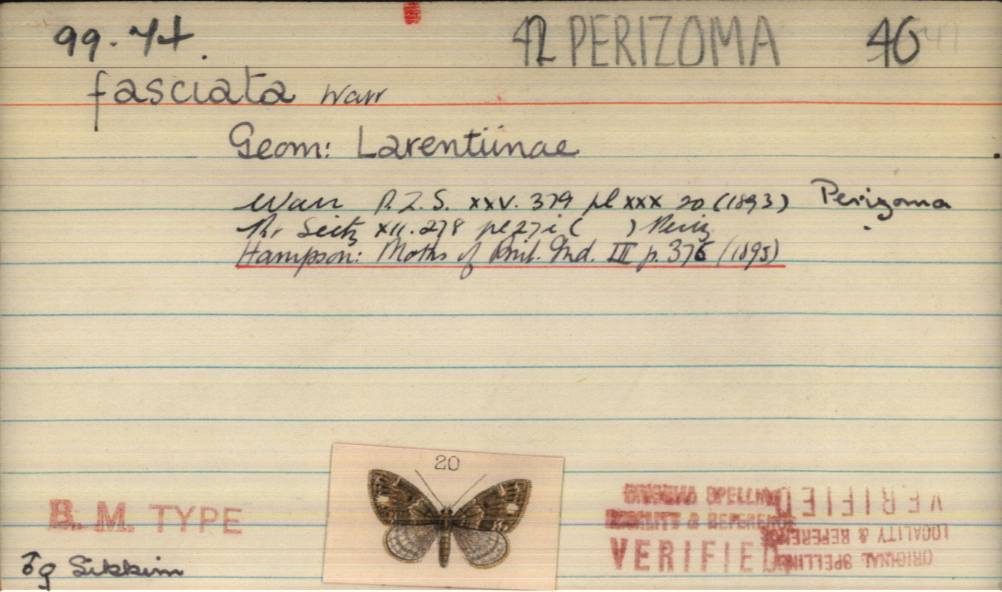 99. 74.
42 PERIZOMA 46 47
fasciata Warr
Geom: Larentiinae
Warr P.Z.S. xxv. 379 pl xxx 20 (1893) Perizoma
Pr. Seitz XII. 278 pl 27 i ( ) Periz
Hampson: Moths of Brit. Ind. III p. 376 (1895)
20
B. M. TYPE
♂♀ Sikkim
ORIGINAL SPELLING
LOCALITY & REFERENCE
VERIFIED
VERIFIED
LOCALITY & REFERENCE
ORIGINAL SPELLING